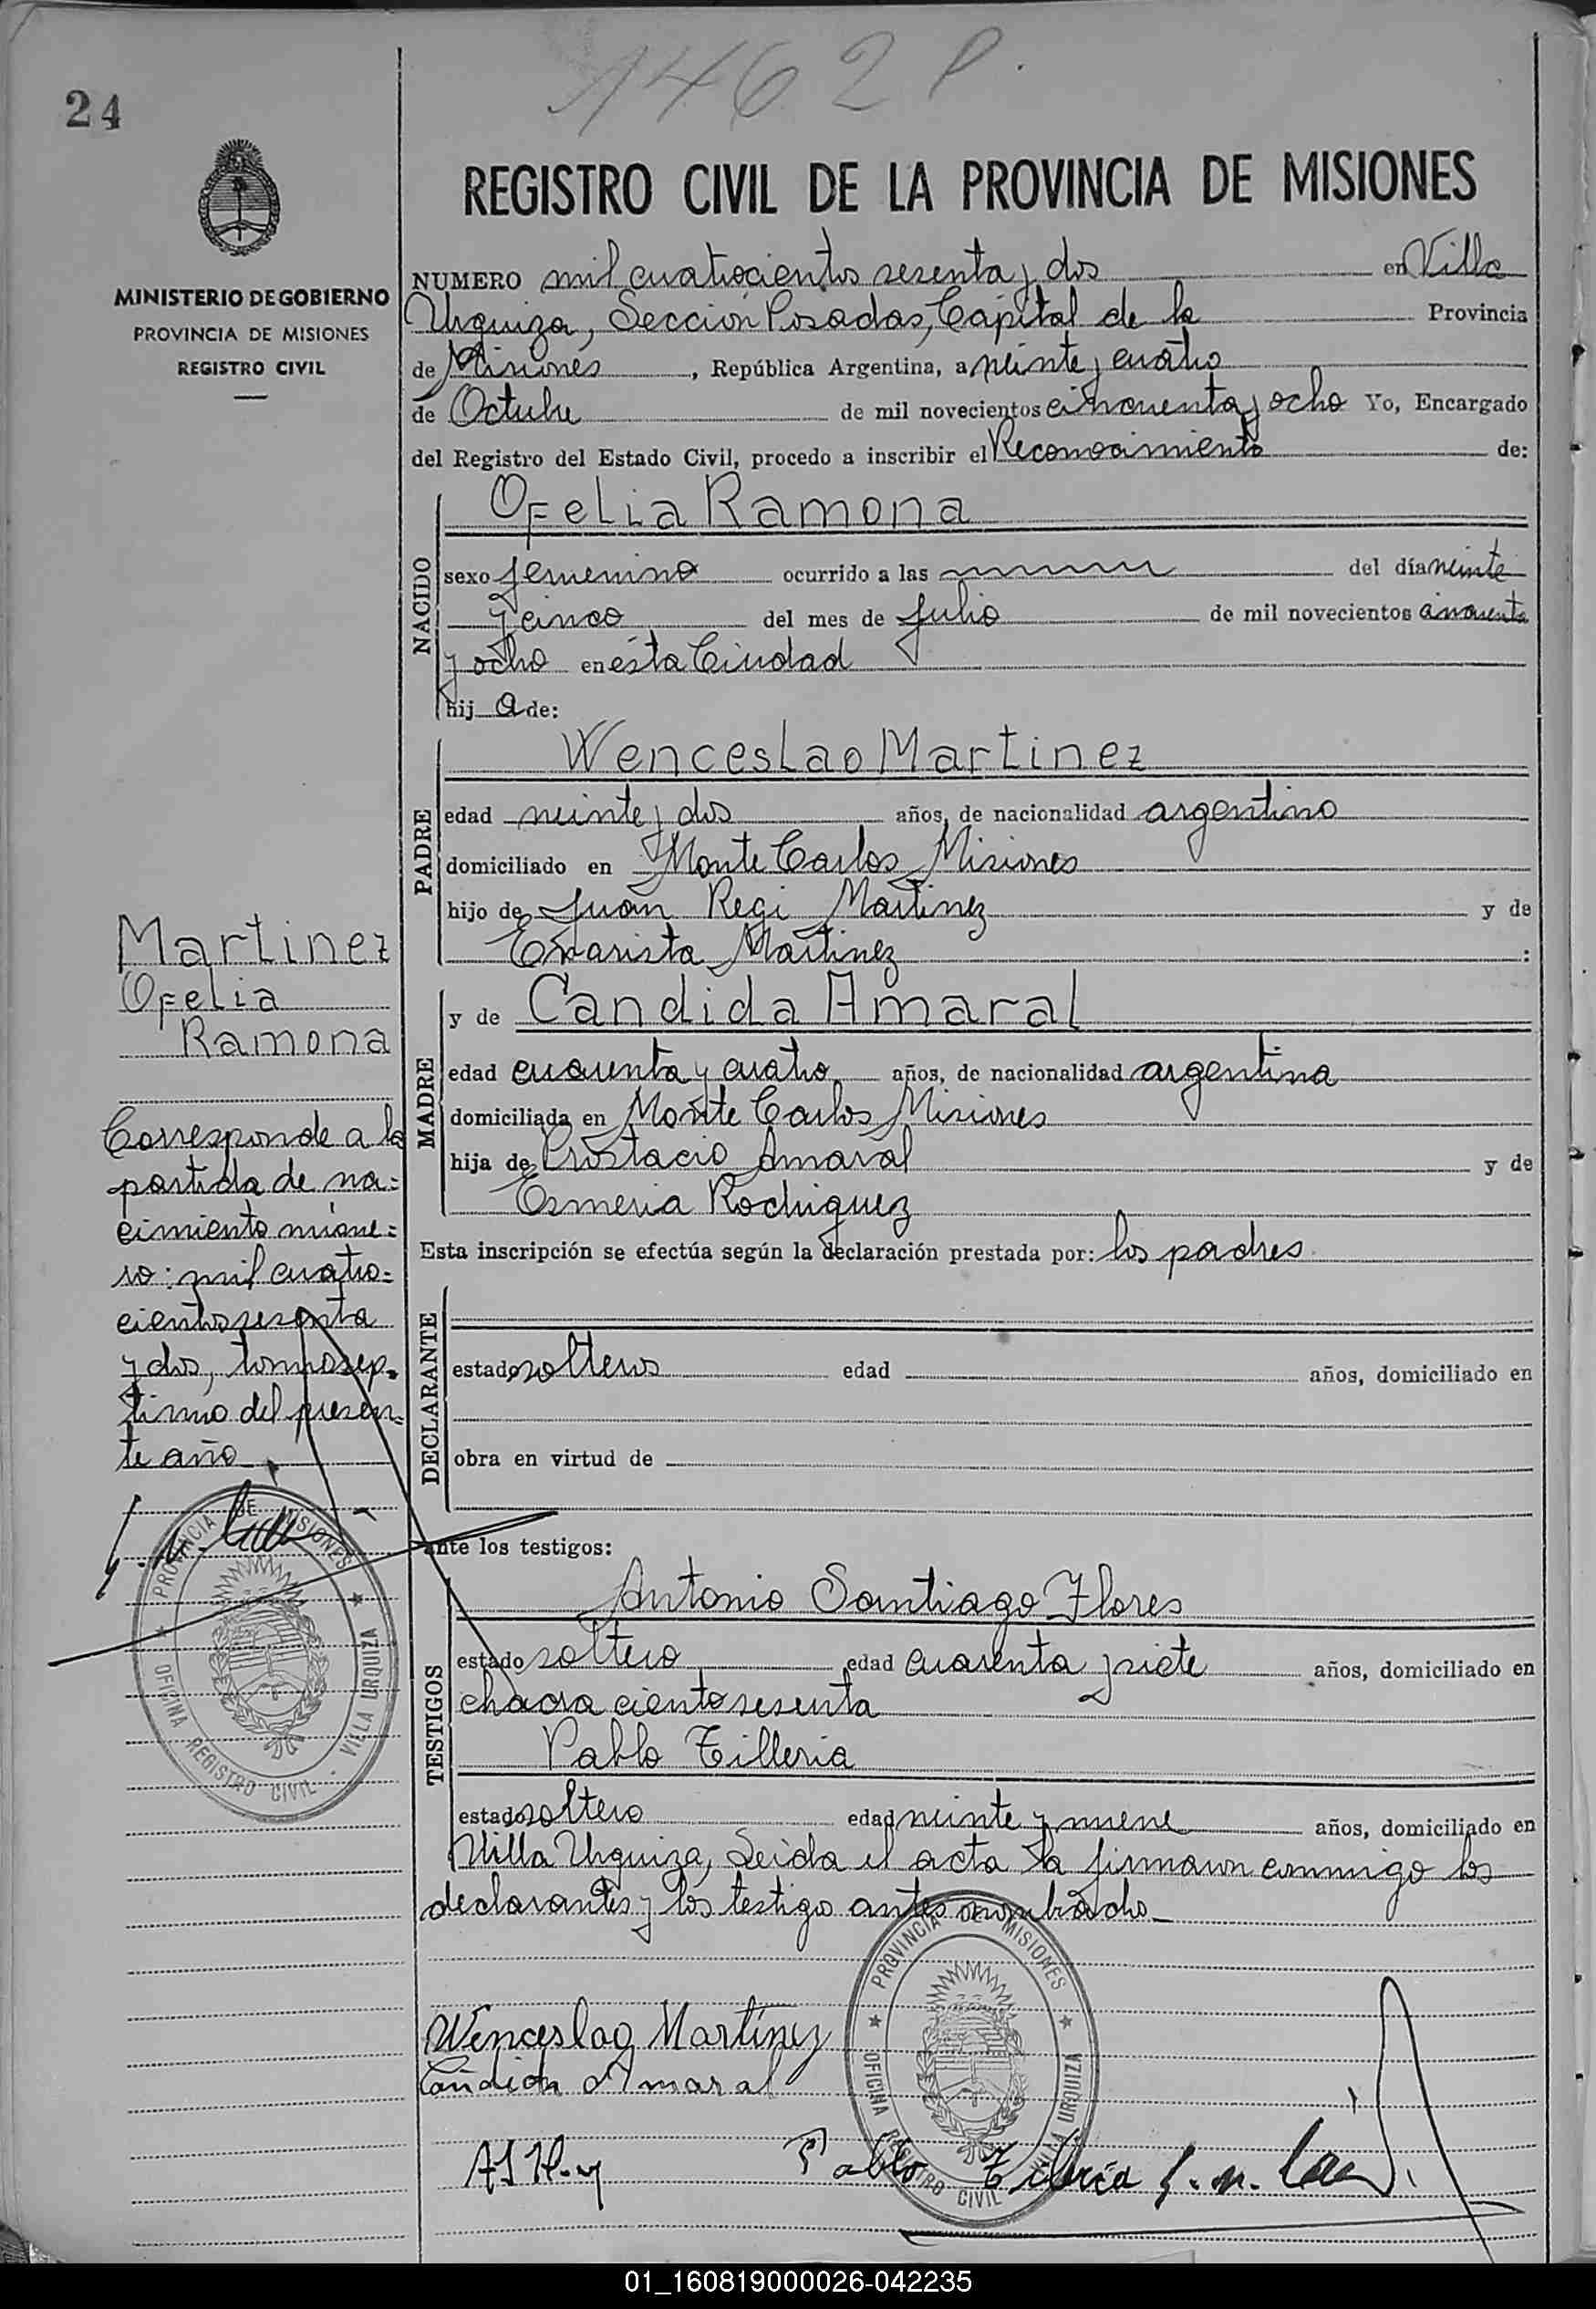 24
1462 P.
MINISTERIO DE GOBIERNO
PROVINCIA DE MISIONES
REGISTRO CIVIL
REGISTRO CIVIL DE LA PROVINCIA DE MISIONES
NUMERO mil cuatrocientos sesenta y dos en Villa
Urquiza, Sección Posadas, Capital de la Provincia
de Misiones, República Argentina, a veinte y cuatro
de Octubre de mil novecientos cincuenta y ocho Yo, Encargado
del Registro del Estado Civil, procedo a inscribir el Reconocimiento de:
NACIDO
Ofelia Ramona
sexo femenino ocurrido a las del día veinte
y cinco del mes de Julio de mil novecientos cincuenta
y ocho en ésta Ciudad
hij a de:
PADRE
Wenceslao Martinez
edad veinte y dos años, de nacionalidad argentino
domiciliado en Monte Carlos Misiones
hijo de Juan Regi Martinez y de
Evarista Martinez :
MADRE
y de Candida Amaral
edad cuarenta y cuatro años, de nacionalidad argentina
domiciliada en Monte Carlos Misiones
hija de Amaral y de
Rodriguez
Esta inscripción se efectúa según la declaración prestada por: los padres
DECLARANTE
estado solteros edad años, domiciliado en
obra en virtud de
ante los testigos:
TESTIGOS
Antonio Santiago Flores
estado soltero edad cuarenta y siete años, domiciliado en
chacra ciento sesenta
Pablo Tilleria
estado soltero edad veinte y nueve años, domiciliado en
Villa Urquiza, Leida el acta la firmaron conmigo los
declarantes y los testigo antes nombrado
Wenceslao Martínez
Candida Amaral
Pablo Tileria
Martinez
Ofelia
Ramona
Corresponde a la
partida de na=
cimiento núme=
ro: mil cuatro=
cientos sesenta
y dos, tomo sep=
timo del presen=
te año
PROVINCIA DE MISIONES
OFICINA REGISTRO CIVIL - VILLA URQUIZA
PROVINCIA DE MISIONES
OFICINA REGISTRO CIVIL - VILLA URQUIZA
01_160819000026-042235